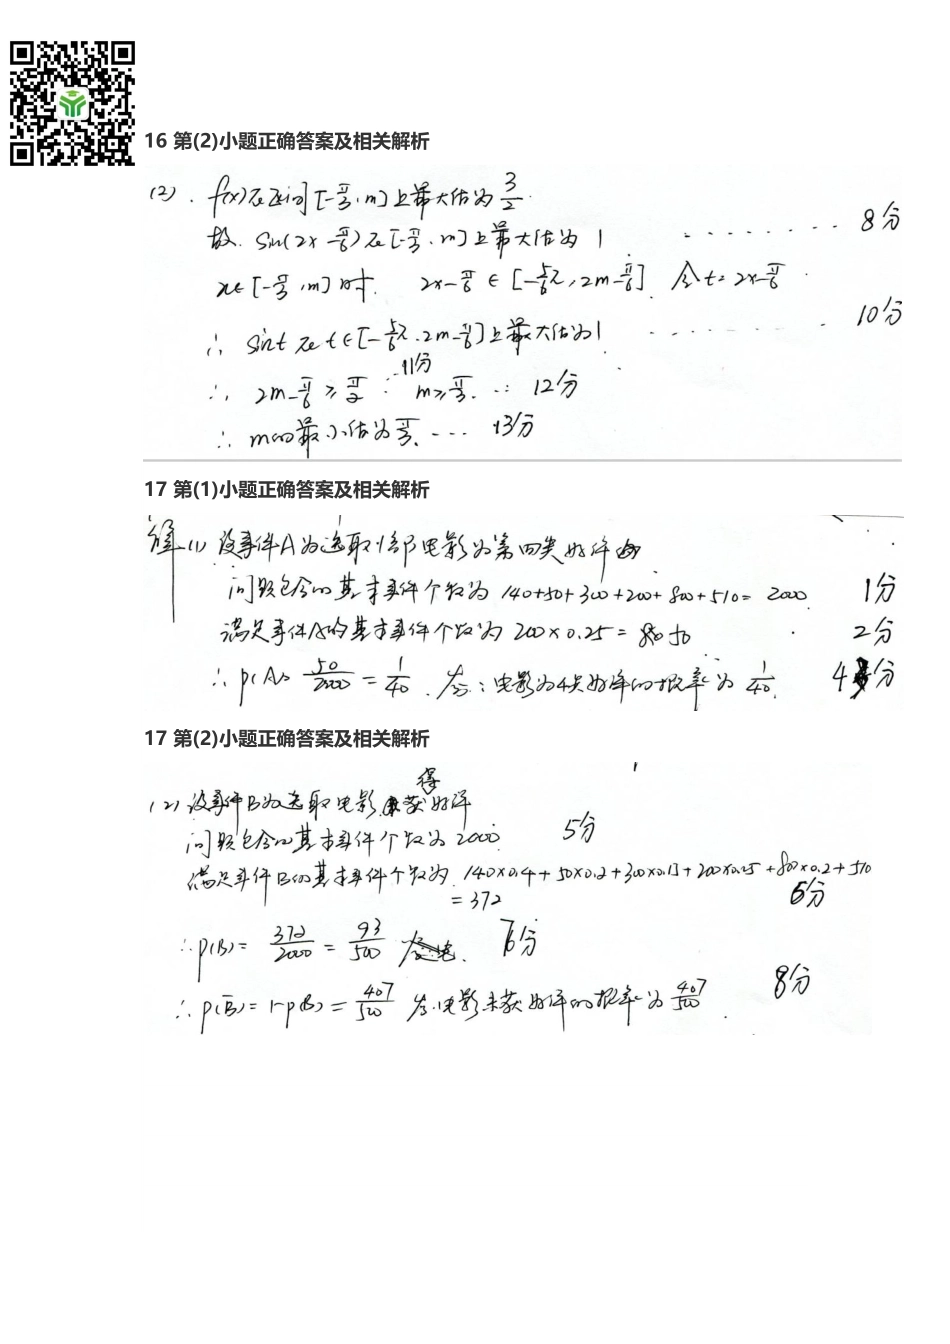 16 第(2)小题正确答案及相关解析
(2). f(x)在区间[-π/3, m]上最大值为 3/2.
故. sin(2x-π/6)在[-π/3, m]上最大值为 1 ········ 8分
x∈[-π/3, m]时. 2x-π/6 ∈ [-5/6π, 2m-π/6]. 令t=2x-π/6
∴ sint 在 t∈[-5/6π, 2m-π/6]上最大值为1 ········ 10分
∴ 2m-π/6 ≥ π/2 ··11分 m≥π/3. ··· 12分
∴ m的最小值为π/3. ···· 13分
17 第(1)小题正确答案及相关解析
解 (1) 设事件A为选取1部电影为第四类好评
问题包含的基本事件个数为 140+50+300+200+800+510= 2000 1分
满足事件A的基本事件个数为 200×0.25= 50 2分
∴ P(A)= 50/2000 = 1/40. 答: 电影为4类好评的概率为 1/40. 4分
17 第(2)小题正确答案及相关解析
(2) 设事件B为选取电影获得好评
问题包含的基本事件个数为 2000 5分
满足事件B的基本事件个数为 140×0.4+50×0.2+300×0.15+200×0.25+800×0.2+510
=372 6分
∴P(B)= 372/2000 = 93/500 7分
∴ P(B̄)= 1-P(B) = 407/500 答:电影未获好评的概率为 407/500. 8分